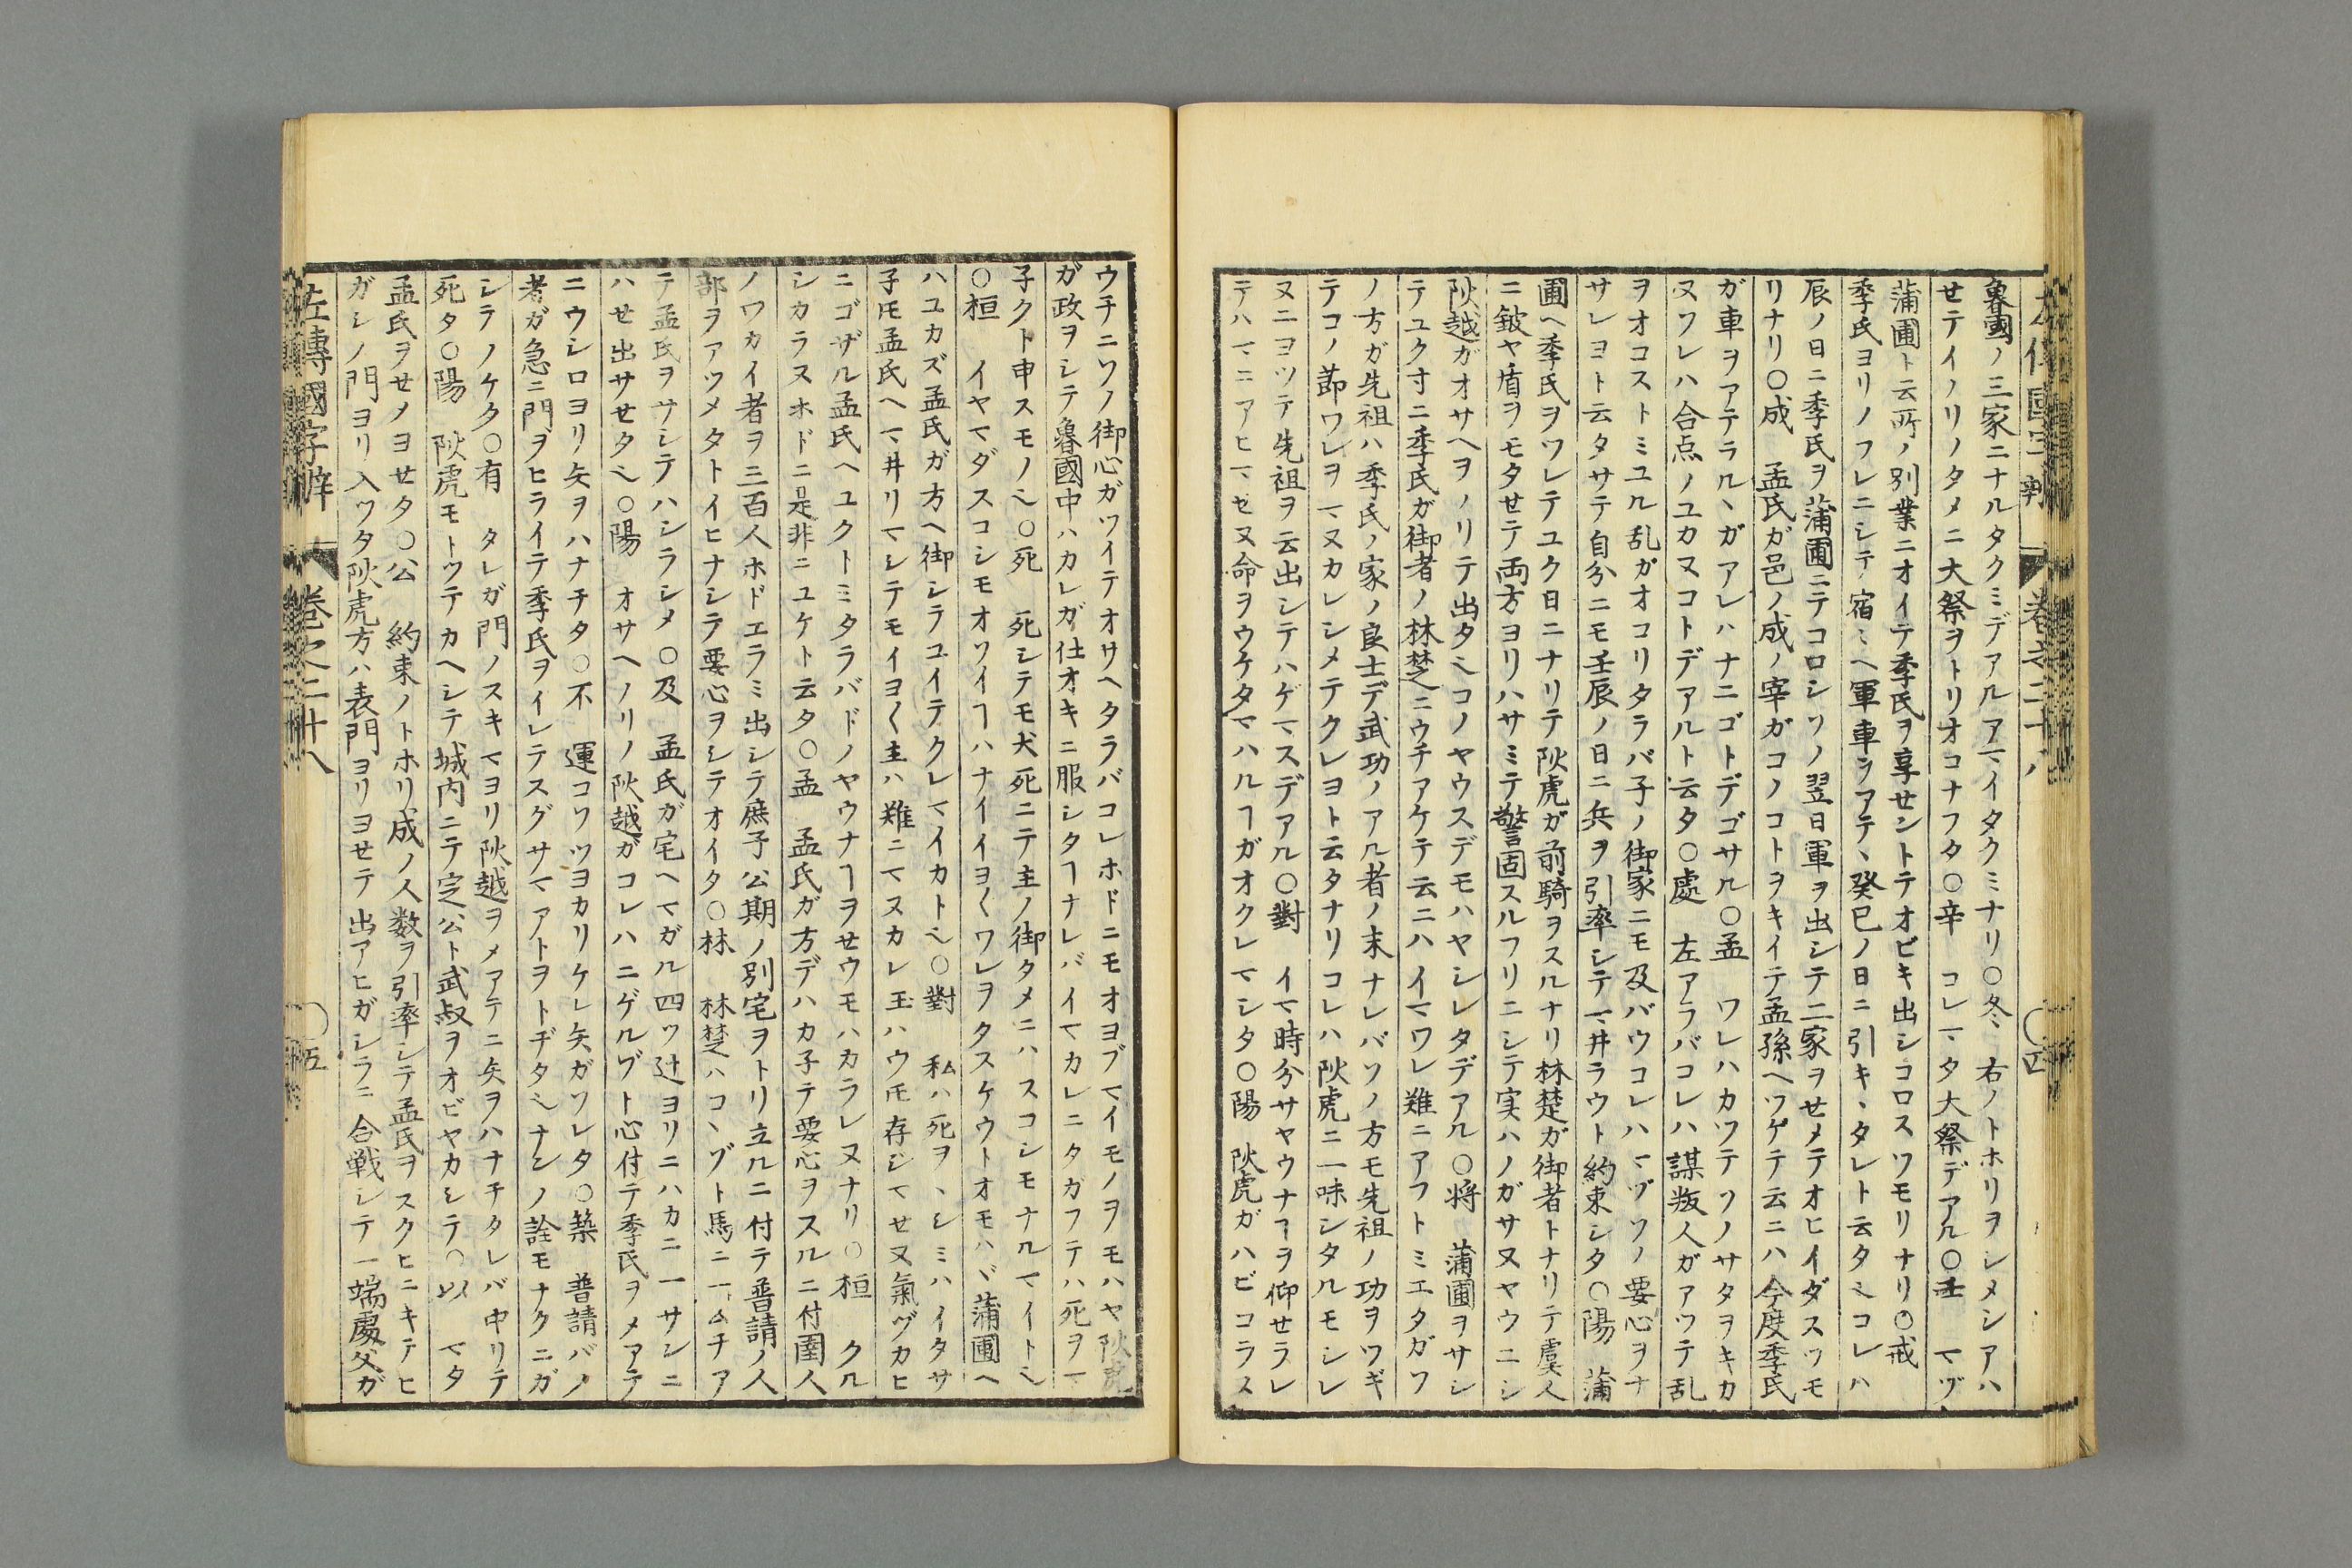 魯國ノ三家ニナルタクミデアルアマイタクミナリ○冬、右ノトホリヲシメシアハ
せテイノリノタメニ大祭ヲトリオコナフタ○辛　コレマタ大祭デアル○壬　マヅ、
蒲圃ト云所ノ別業ニオイテ季氏ヲ享せントテオビキ出シコロスツモリナリ○戒
季氏ヨリノフレニシテ宿ミヘ軍車ヲアテ、癸巳ノ日ニ引キ、タレト云タ〻コレハ
辰ノ日ニ季氏ヲ蒲圃ニテコロシソノ翌日軍ヲ出シテ二家ヲせメテオヒイダスツモ
リナリ○成　孟氏ガ邑ノ成ノ宰ガコノコトヲキイテ孟孫ヘツゲテ云ニハ今度季氏
ガ車ヲアテラル、ガアレハナニゴトデゴサル○孟　ワレハカツテソノサタヲキカ
ヌワレハ合点ノユカヌコトデアルト云タ○處　左アラバコレハ謀叛人ガアツテ乱
ヲオコストミユル乱ガオコリタラバ子ノ御家ニモ及バウコレハマヅソノ要心ヲナ
サレヨト云タサテ自分ニモ壬辰ノ日ニ兵ヲ引率シテマ井ラウト約束シタ○陽　蒲
圃ヘ季氏ヲツレテユク日ニナリテ陽虎ガ前騎ヲスルナリ林楚ガ御者トナリテ虞人
ニ鈹ヤ盾ヲモタせテ両方ヨリハサミテ警固スルフリニシテ実ハノガサヌヤウニシ
陽越ガオサヘヲノリテ出タ〻コノヤウスデモハヤシレタデアル○将　蒲圃ヲサシ
テユク寸ニ季氏ガ御者ノ林楚ニウチアケテ云ニハイマワレ難ニアフトミエタガソ
ノ方ガ先祖ハ季氏ノ家ノ良士デ武功ノアル者ノ末ナレバソノ方モ先祖ノ功ヲツギ
テコノ節ワレヲマヌカレシメテクレヨト云タナリコレハ陽虎ニ一味シタルモシレ
ヌニヨツテ先祖ヲ云出シテハゲマスデアル○對　イマ時分サヤウナヿヲ仰せラレ
テハマニアヒマせヌ命ヲウケタマハルヿガオクレマシタ○陽　陽虎ガハビコラス
ウチニソノ御心ガツイテオサヘタラバコレホドニモオヨブマイモノヲモハヤ陽虎
ガ政ヲシテ魯國中ハカレガ仕オキニ服シタヿナレバイマカレニタガフテハ死ヲマ
子クト申スモノ〻○死　死シテモ犬死ニテ主ノ御タメニハスコシモナルマイト〻
○桓　イヤマダスコシモオソイヿハナイイヨ〱ワレヲタスケウトオモハヾ蒲圃ヘ
ハユカズ孟氏ガ方ヘ御シラユイテクレマイカト〻○對　私ハ死ヲヽシミハイタサ
子𪜈孟氏ヘマ井リマシテモイヨ〱主ハ難ニマヌカレ玉ハウ𪜈存ジマせヌ氣ヅカヒ
ニゴザル孟氏ヘユクトミタラバドノヤウナヿヲせウモハカラレヌナリ○桓　クル
シカラヌホドニ是非ニユケト云タ○孟　孟氏ガ方デハカ子テ要心ヲスルニ付圉人
ノワカイ者ヲ三百人ホドエラミ出シテ庶子公期ノ別宅ヲトリ立ルニ付テ普請ノ人
部ヲアツメタトイヒナシテ要心ヲシテオイタ○林　林楚ハコヽゾト馬ニ一ムチア
テ孟氏ヲサシテハシラシメ○及　孟氏ガ宅ヘマガル四ツ辻ヨリニハカニ一サンニ
ハせ出サせタ〻○陽　オサヘノリノ陽越ガコレハニゲルゾト心付テ季氏ヲメアテ
ニウシロヨリ矢ヲハナチタ○不　運コソツヨカリケレ矢ガソレタ○築　普請バノ
者ガ急ニ門ヲヒライテ季氏ヲイレテスグサマアトヲトヂタ〻ナンノ詮モナクニガ
シテノケタ○有　タレガ門ノスキマヨリ陽越ヲメアテニ矢ヲハナチタレバ中リテ
死タ○陽　陽虎モトツテカヘシテ城内ニテ定公ト武叔ヲオビヤカシテ○以　マタ
孟氏ヲせメヨせタ○公　約束ノトホリ成ノ人数ヲ引率シテ孟氏ヲスクヒニキテヒ
ガシノ門ヨリ入ツタ陽虎方ハ表門ヨリヨせテ出アヒガシラニ合戦シテ一端處父ガ
左傳國字辨　卷之二十八　○五